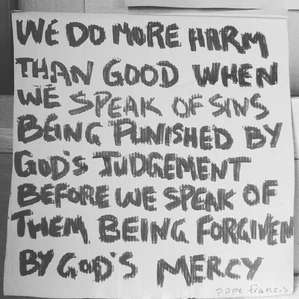 WE DO MORE HARM
THAN GOOD WHEN
WE SPEAK OF SINS
BEING PUNISHED BY
GOD'S JUDGEMENT
BEFORE WE SPEAK OF
THEM BEING FORGIVEN
BY GOD'S MERCY
pope francis